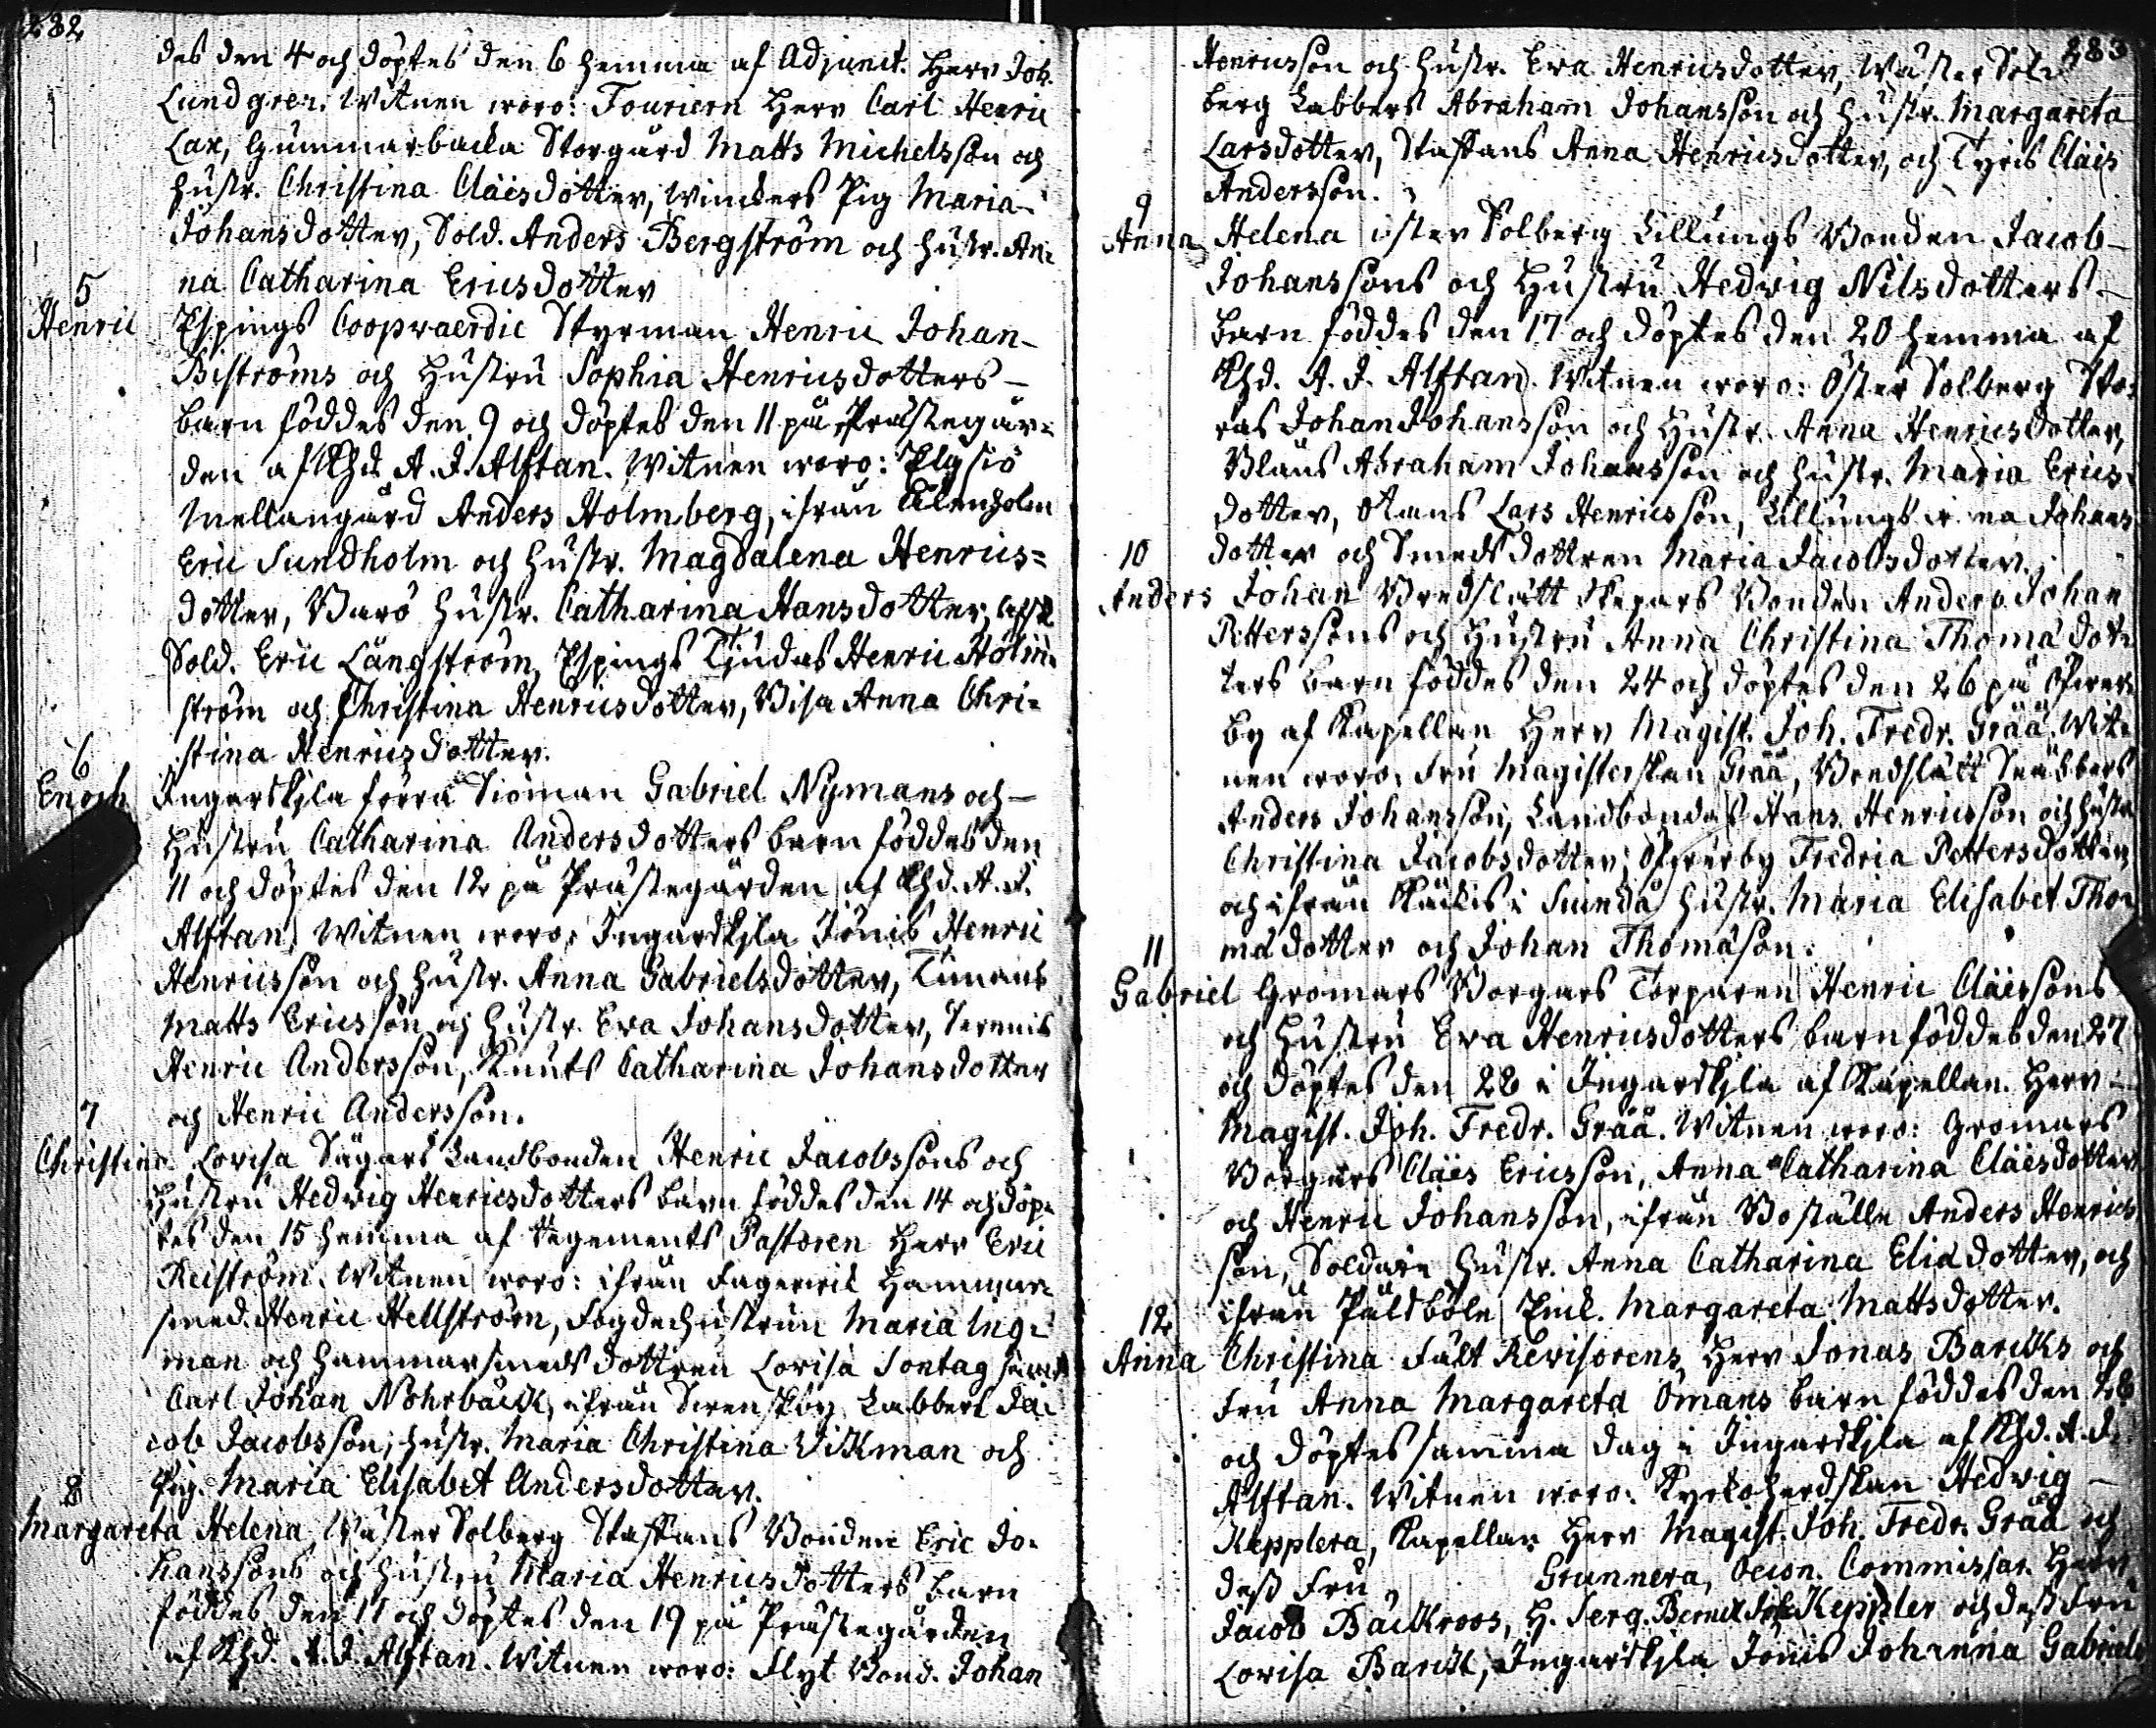 282
des den 4 och döptes den 6 hemma af Adjunct. Herr Joh.
Lundgren. Witnen woro: Fouriern Herr Carl Henric
Lax, Gummarbacka Storgård Matts Michelsson och
hustr. Christina Cläesdotter, Winckers Pig Maria
Johansdotter, Sold. Anders Bergström och hustr. An-
na Catharina Ericsdotter
5
Henric Espings Coopvaerdie Styrman Henric Johan
Biströms och Hustru Sophia Henricsdotters
barn föddes den 9 och döptes den 11 på Prästegår-
den af Khd. A. J. Alftan. Witnen woro: Elgsiö
Mellangård Anders Holmberg, ifrån Ålenholm
Eric Sundholm och hustr. Magdalena Henrics=
dotter, Barö hustr. Catharina Hansdotter, Afsk.
Sold. Eric Långström, Espings Tjudas Henric Holm-
ström och Christina Henricsdotter, Bisa Anna Chri-
stina Henricsdotter.
6
Enoch Ingarskila förra Sioman Gabriel Nymans och
Hustru Catharina Andersdotters barn föddes den
11 och döptes den 12 på Prästegården af Khd. A. J.
Alftan. Witnen woro: Ingarskila Jönis Henric
Henricsson och hustr. Anna Gabrielsdotter, Timans
Matts Ericsson och hustr. Eva Johansdotter,
Henric Andersson, Knuts Catharina Johansdotter
och Henric Andersson.
7
Christina Lovisa Sågars Landbonden Henric Jacobssons och
Hustru Hedvig Henricsdotters barn föddes den 14 och döp-
tes den 15 hemma af Regements Pastoren Herr Eric
Reiström. Witnen woro: ifrån Fagervik Hammar-
smed. Henric Hellström, Fogdehustrun Maria Ing-
man och Hammarsmedsdottren Lovisa Sontag samt
Carl Johan Nohrbäck, ifrån Svenskby Labbers Ja-
cob Jacobsson, hustr. Maria Christina Vikman och
Pig. Maria Elisabet Andersdotter.
8
Margareta Helena Wäster Solberg Staffans Bonden Eric Jo-
hanssons och hustru Maria Henricsdotters barn
föddes den 17 och döptes den 19 på Prästegården
af Khd. A. J. Alftan. Witnen woro: Flyt Bond. Johan
283
Henricsson och hustr. Eva Henricsdotter, Wäster Sol-
berg Labbers Abraham Johansson och hustr. Margareta
Larsdotter, Staffans Anna Henricsdotter, och Tyris Cläes
Andersson.
9
Anna Helena Öster Solberg Lillungs Bonden Jacob
Johanssons och Hustru Hedvig Nilsdotters
barn föddes den 17 och döptes den 20 hemma af
Khd. A. J. Alftan. Witnen woro: Öster Solberg Sto-
ras Johan Johansson och Hustr. Anna Henricsdotter,
Bläus Abraham Johansson och hustr. Maria Erics-
dotter, Stans Lars Henricsson, Lillungs Johans
dotter och Smedsdottren Maria Jacobsdotter.
10
Anders Johan Bredslätt Skepars Bonden Anders Johan
Petterssons och Hustru Anna Christina Thomädot-
ters barn föddes den 24 och döptes den 26 på Öfver-
by af Kapellan Herr Magist. Joh. Fredr. Grää. Wit-
nen woro: Fru Magisterskan Grää, Bredslätt Snäbbers
Anders Johansson, Landbondas Hans Henricsson och hustr.
Christina Jacobsdotter, Öfverby Fredrica Pettersdotter
och ifrån i Siundå hustr. Maria Elisabet Tho-
mädotter och Johan Thomäson.
11
Gabriel Gromars Borgars Torparen Henric Cläessons
och Hustru Eva Henricsdotters barn föddes den 27
och döptes den 28 i Ingarskila af Kapellan. Herr
Magist. Joh. Fredr. Grää. Witnen woro: Gromars
Borgars Cläes Ericsson, Anna Catharina Cläesdotter
och Henric Johansson, ifrån Boställe Anders Henrics
son, Soldate hustr. Anna Catharina Eliædotter, och
ifrån Påldböle Enk. Margareta Mattsdotter.
12
Anna Christina Fält Revisorens Herr Jonas Barcks och
Fru Anna Margareta Ömans barn föddes den 28
och döptes samma dag i Ingarskila af Khd. A. J.
Alftan. Witnen woro: Kyrkoherdskan Hedvig
Kepplera, Kapellan Herr Magist. Joh. Fredr. Grää och
dess Fru Grunnera, Oecon. Commissar. Herr
Jacob Bäckroos, H. Serg. Bernt Joh. Keppler och dess Fru
Lovisa Barck, Ingarskila Jönis Johanna Gabriels